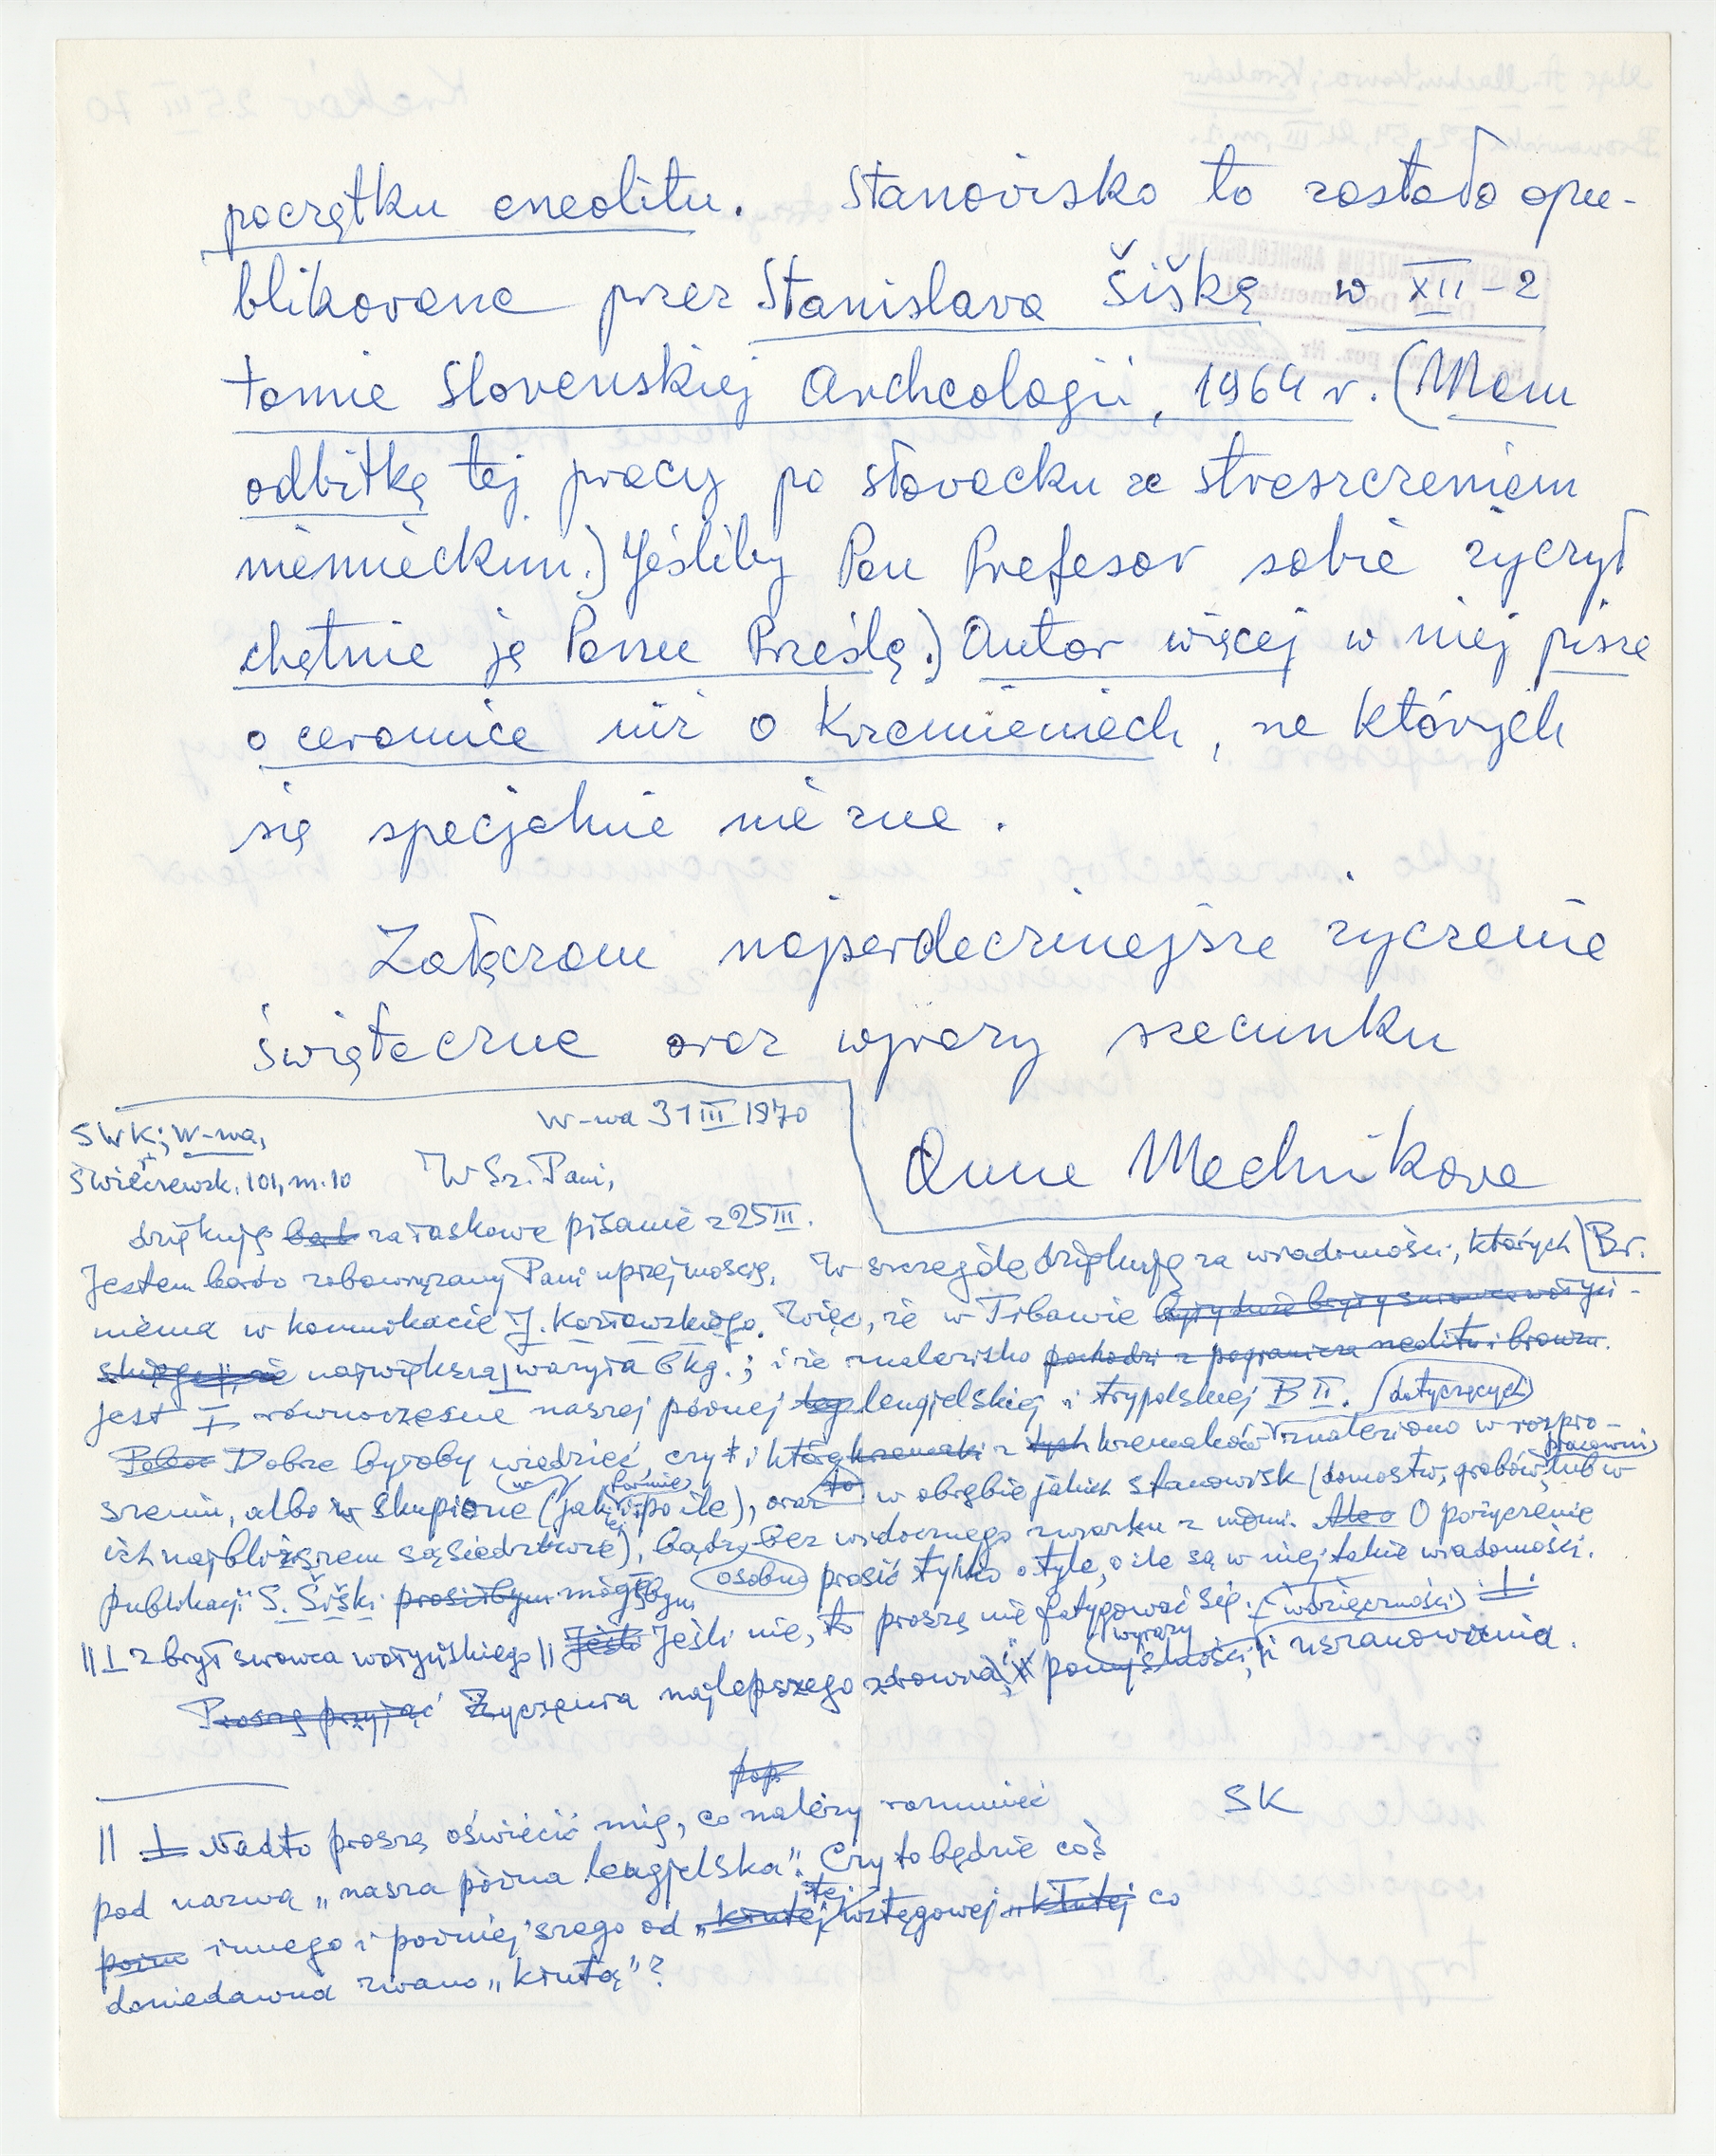 początku eneolitu. Stanowisko to zostało opu-
blikowane przez Stanislava Šišką w XII-2
tomie Slovenskiej Archeologii, 1964 r. (Mam
odbitkę tej pracy po słowacku ze streszczeniem
niemieckim.) Jeśliby Pan Profesor sobie życzył
chętnie ją Panu Prześlę.) Autor więcej w niej pisze
o ceramice niż o Krzemieniach, na których
się specjalnie nie zna.
Załączam najserdeczniejsze życzenia
świąteczne oraz wyrazy szacunku
Anna Machnikowa
SWK; W-wa,
W-wa 31 III 1970
Świerczewsk. 101, m. 10
W Sz. Pani,
dziękuję za łaskawe pisanie z 25 III.
Jestem bardzo zobowiązany Pani uprzejmością. W szczególe dziękuję za wiadomości, których Br.
niema w komunikacie J. Kozłowskiego. Więc, że w Tibawie bryły surowca wołyń-
skiego, że największa ważyła 6 kg.; i że znalezisko pochodzi z pogranicza neolitu i bronzu.
jest ± równoczesne naszej późnej leng lengielskiej i trypolskiej B II. (dotyczących)
Dobrze byłoby wiedzieć, czy i któryś z tych krzemaków znaleziono w rozpro-
szeniu, albo w skupione (w jakiej formie i po ile), oraz to w obrębie jakich stanowisk (domostw, grobów, pracowni, lub w
ich najbliższem sąsiedztwie), bądź bez widocznego związku z niemi. Ale o O pożyczenie
publikacji S. Šiški prosiłbym mógłbym osobno prosić tylko o tyle, o ile są w niej takie wiadomości.
|| ⊥ z brył surowca wołyńskiego || Jeśli Jeśli nie, to proszę nie fatygować się. (wdzięczności) ⊥.
Proszę przyjąć Życzenia najlepszego zdrowia, i pomyślności, i wyrazy uszanowania.
pop
SK
|| ⊥ Nadto proszę oświecić mię, co należy rozumieć
pod nazwą „nasza późna lengjelska”. Czy to będzie coś
późn innego i późniejszego od „kłutej tej wstęgowej „kłutej co
doniedawna zwano „kłutą”?